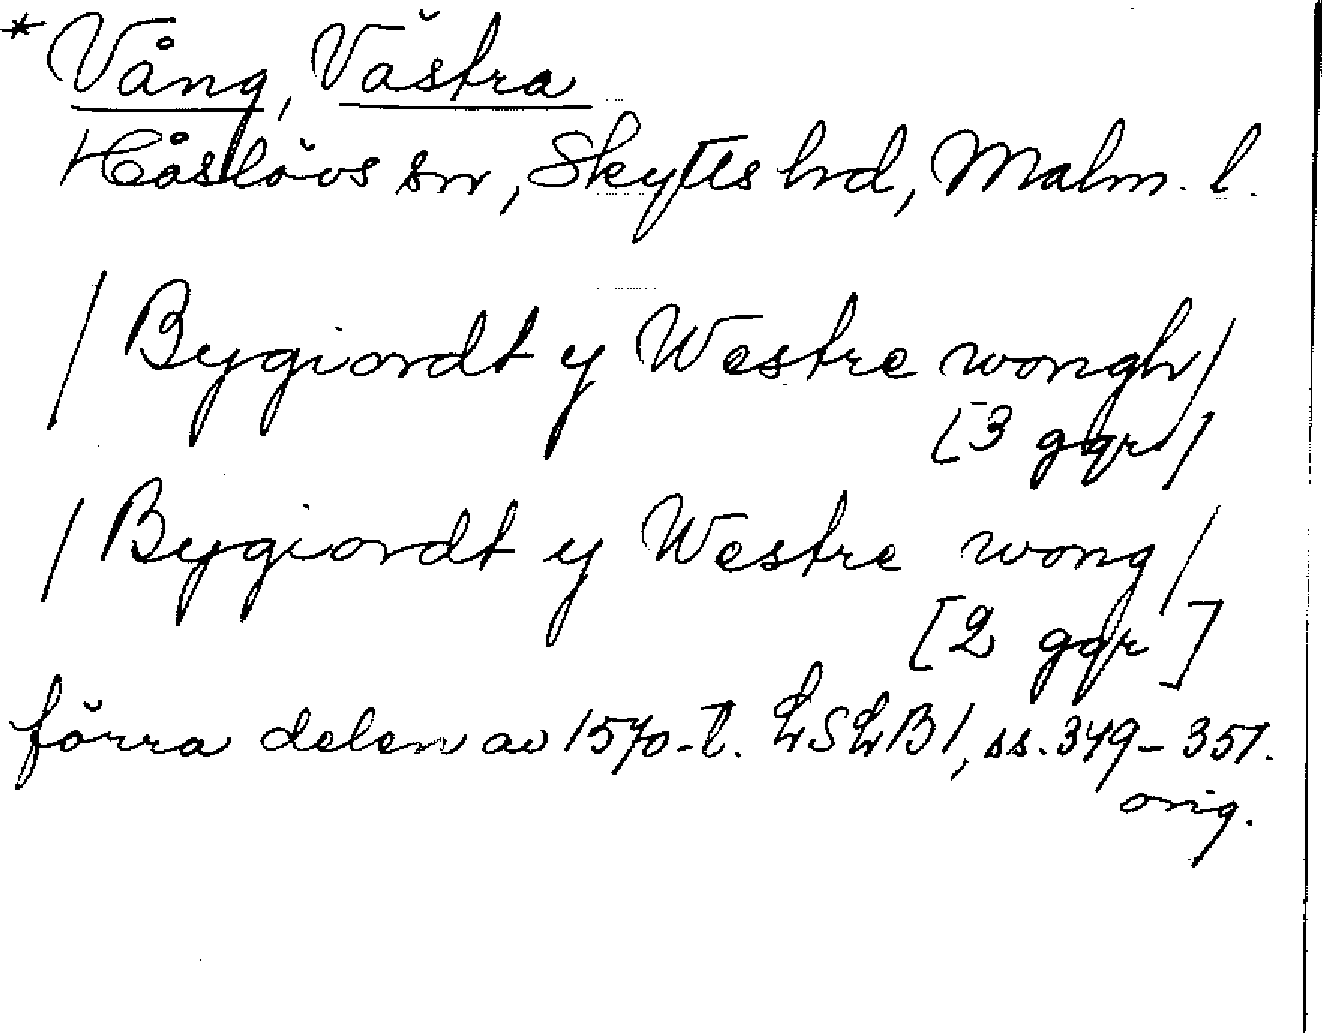 * Vång, Västra
Håslövs sn, Skytts hd, Malm. l.
/ Bygiordt y Westre wongh /
[3 ggr]
/ Bygiordt y Westre wong /
[2 ggr]
förra delen av 1570-t. LSLB 1, ss. 349–351.
orig.